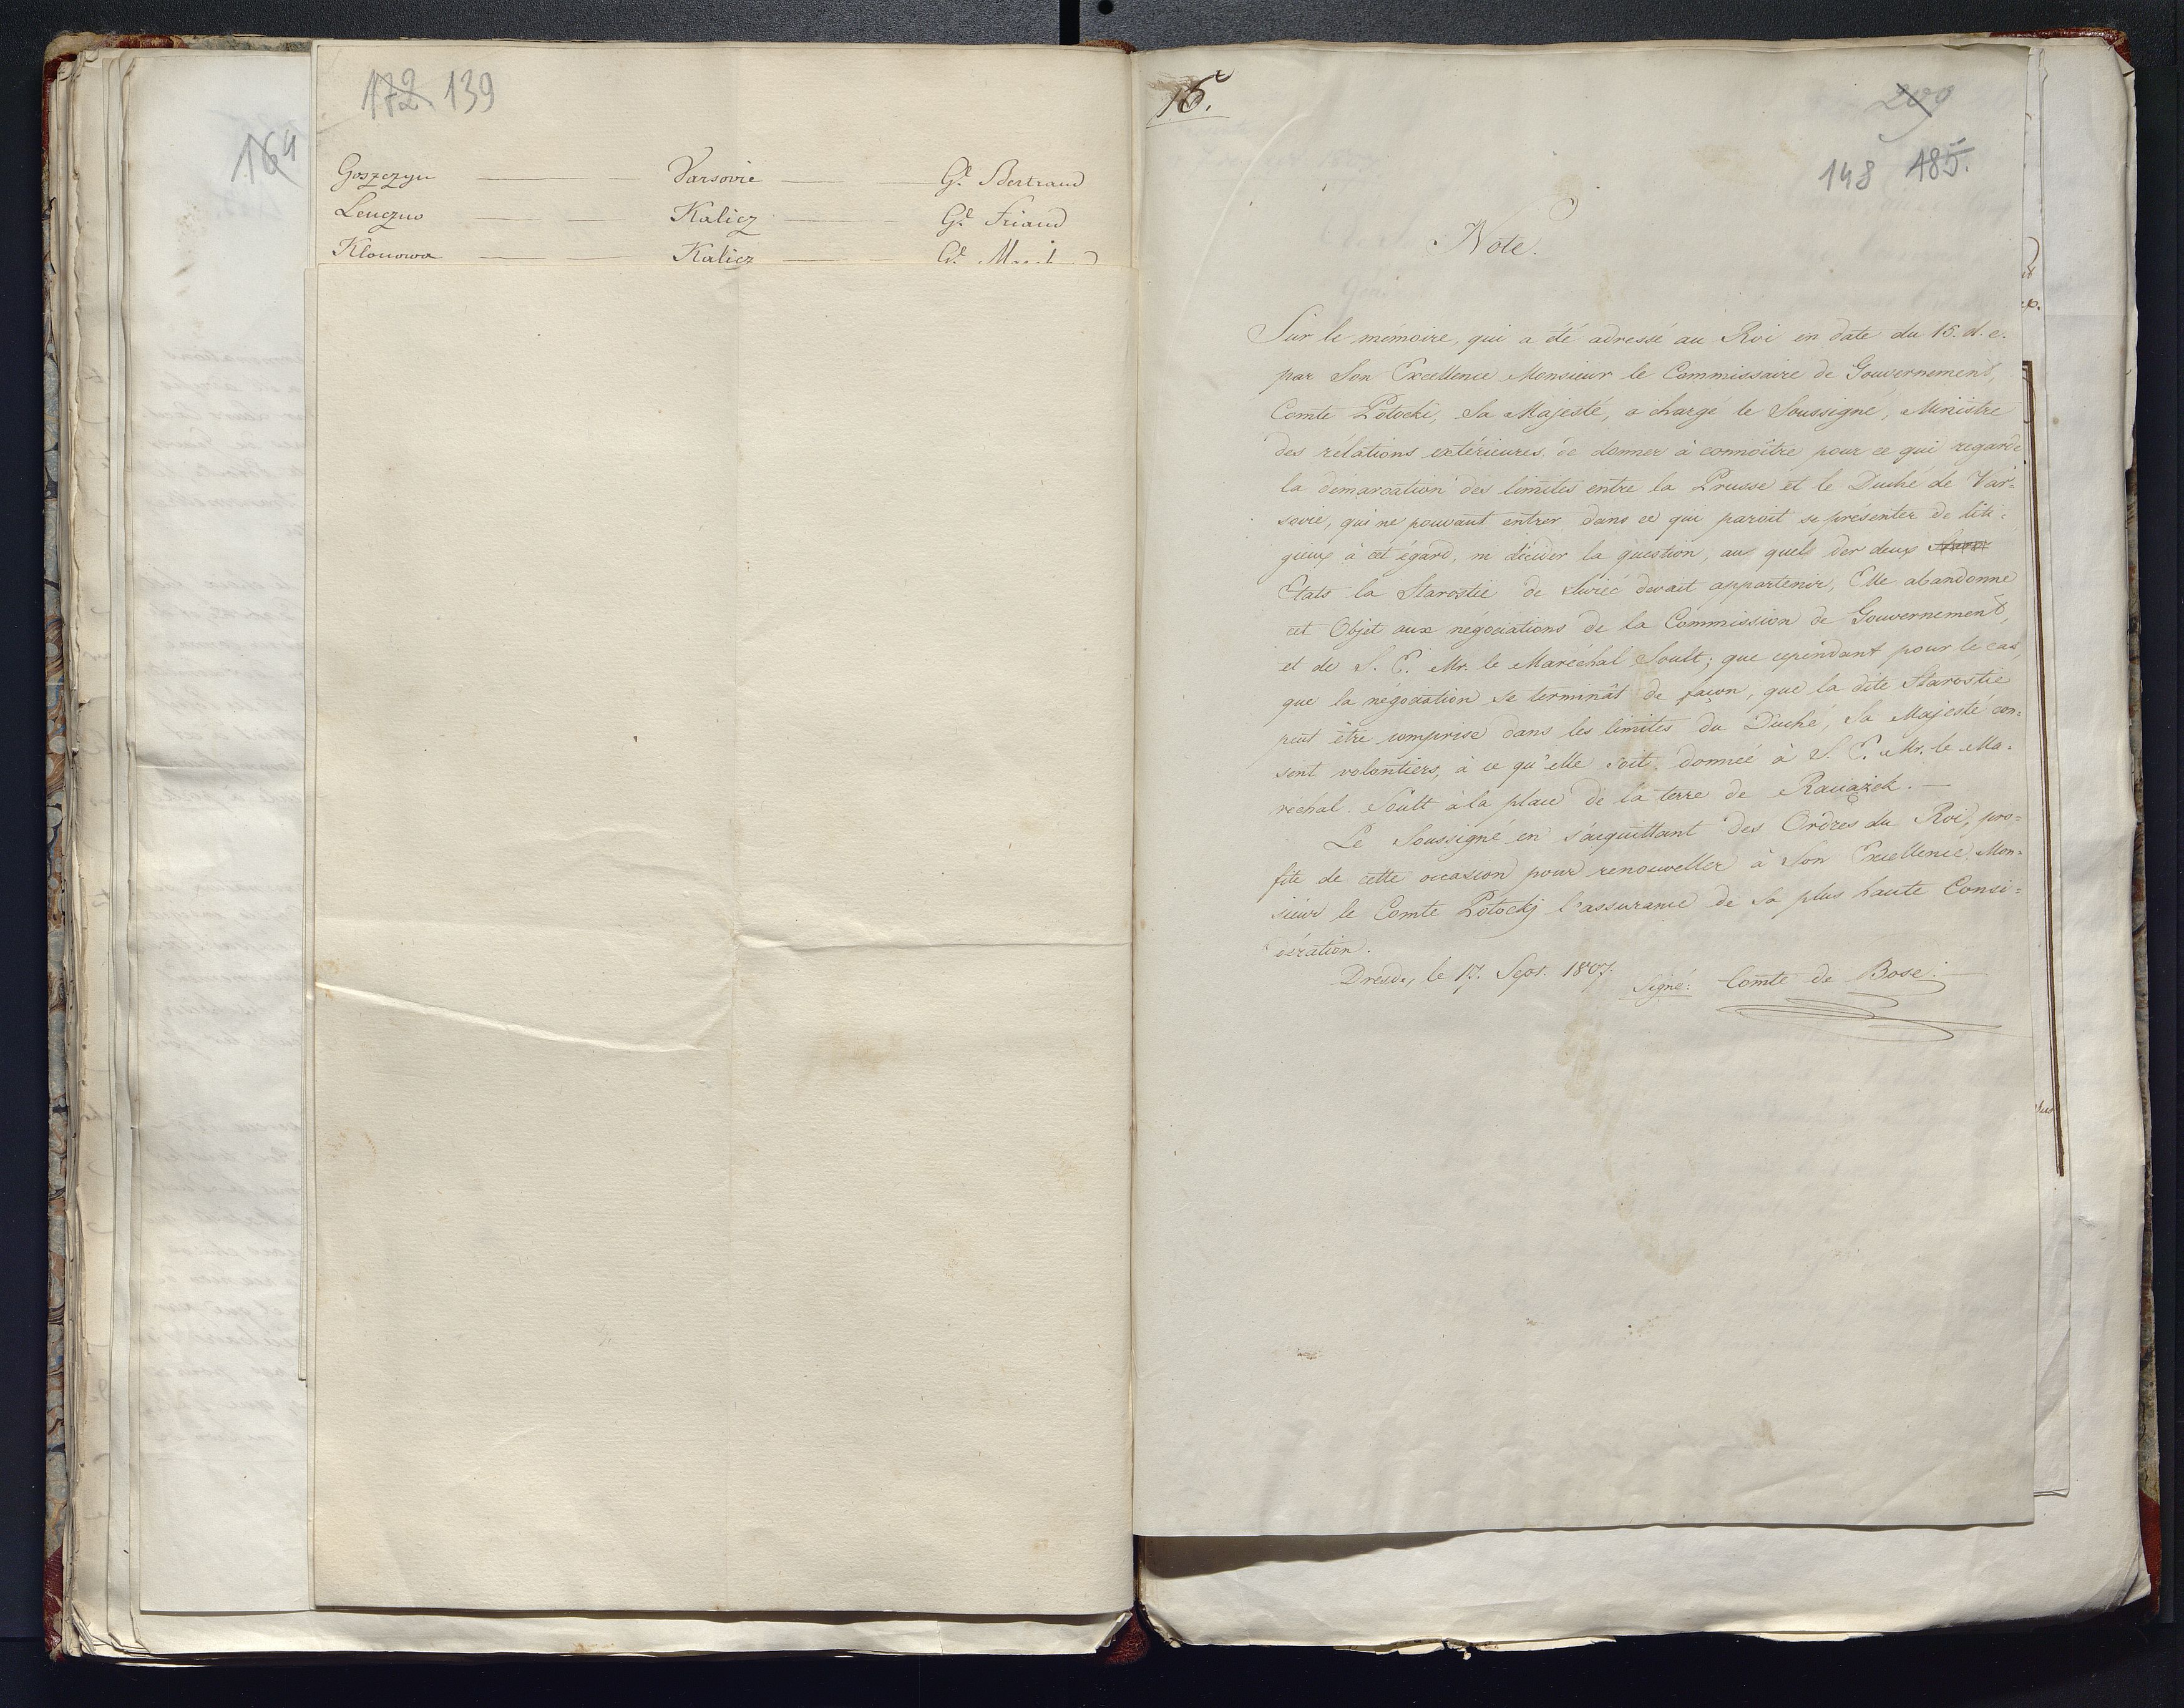 172 139
164
Goszczyn — — Varsovie — — Gl. Bertrand
Lenczno — — Kalicz — — Gl. Friand
Klonowa — — Kalicz — — Gl.
16.
209
148 185.
Note.
Sur le mémoire, qui a été adressé au Roi en date du 15. d. c.
par Son Excellence Monsieur le Commissaire de Gouvernement,
Comte Potocki, Sa Majesté, a chargé le Soussigné, Ministre
des rélations extérieures, de donner à connoître pour ce qui regarde
la démarcation des limites entre la Prusse et le Duché de Var=
sovie, qui ne pouvant entrer dans ce qui paroit se présenter de liti=
gieux à cet égard, ni décider la question, au quel der deux
Etats la Starostie de devait appartenir, Elle abandonne
cet Objet aux négociations de la Commission de Gouvernement,
et de S. E. Mr. le Maréchal Soult; que cependant pour le cas,
que la négociation se terminât de façon, que la dite Starostie
peut être comprise dans les limites du Duché, Sa Majesté con=
sent volontiers, à ce qu'elle soit donnée à S. E. Mr. le Ma=
réchal Soult à la place de la terre de
Le Soussigné en s'acquittant des Ordres du Roi, pro=
fite de cette occasion pour renouveller à Son Excellence, Mon=
sieur le Comte Potockj l'assurance de sa plus haute Consi=
dération.
Dresde, le 17. Sept. 1807.
Signé: Comte de Bose.